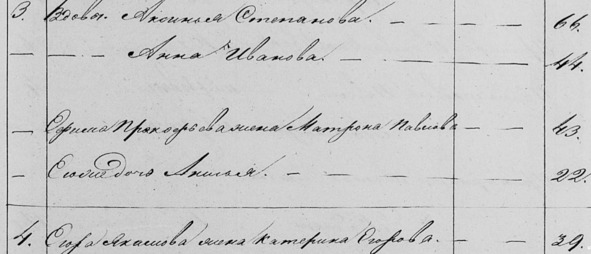 3. Вдова Аксинья Степанова. — — 66.
— — Анна Иванова. — — 44.
— Ефима Прокофьева жена Матрона Павлова — — 43.
— Его же дочь Анисья. — — — 22.
4. Егора Якимова жена Катерина Егорова. — — 39.